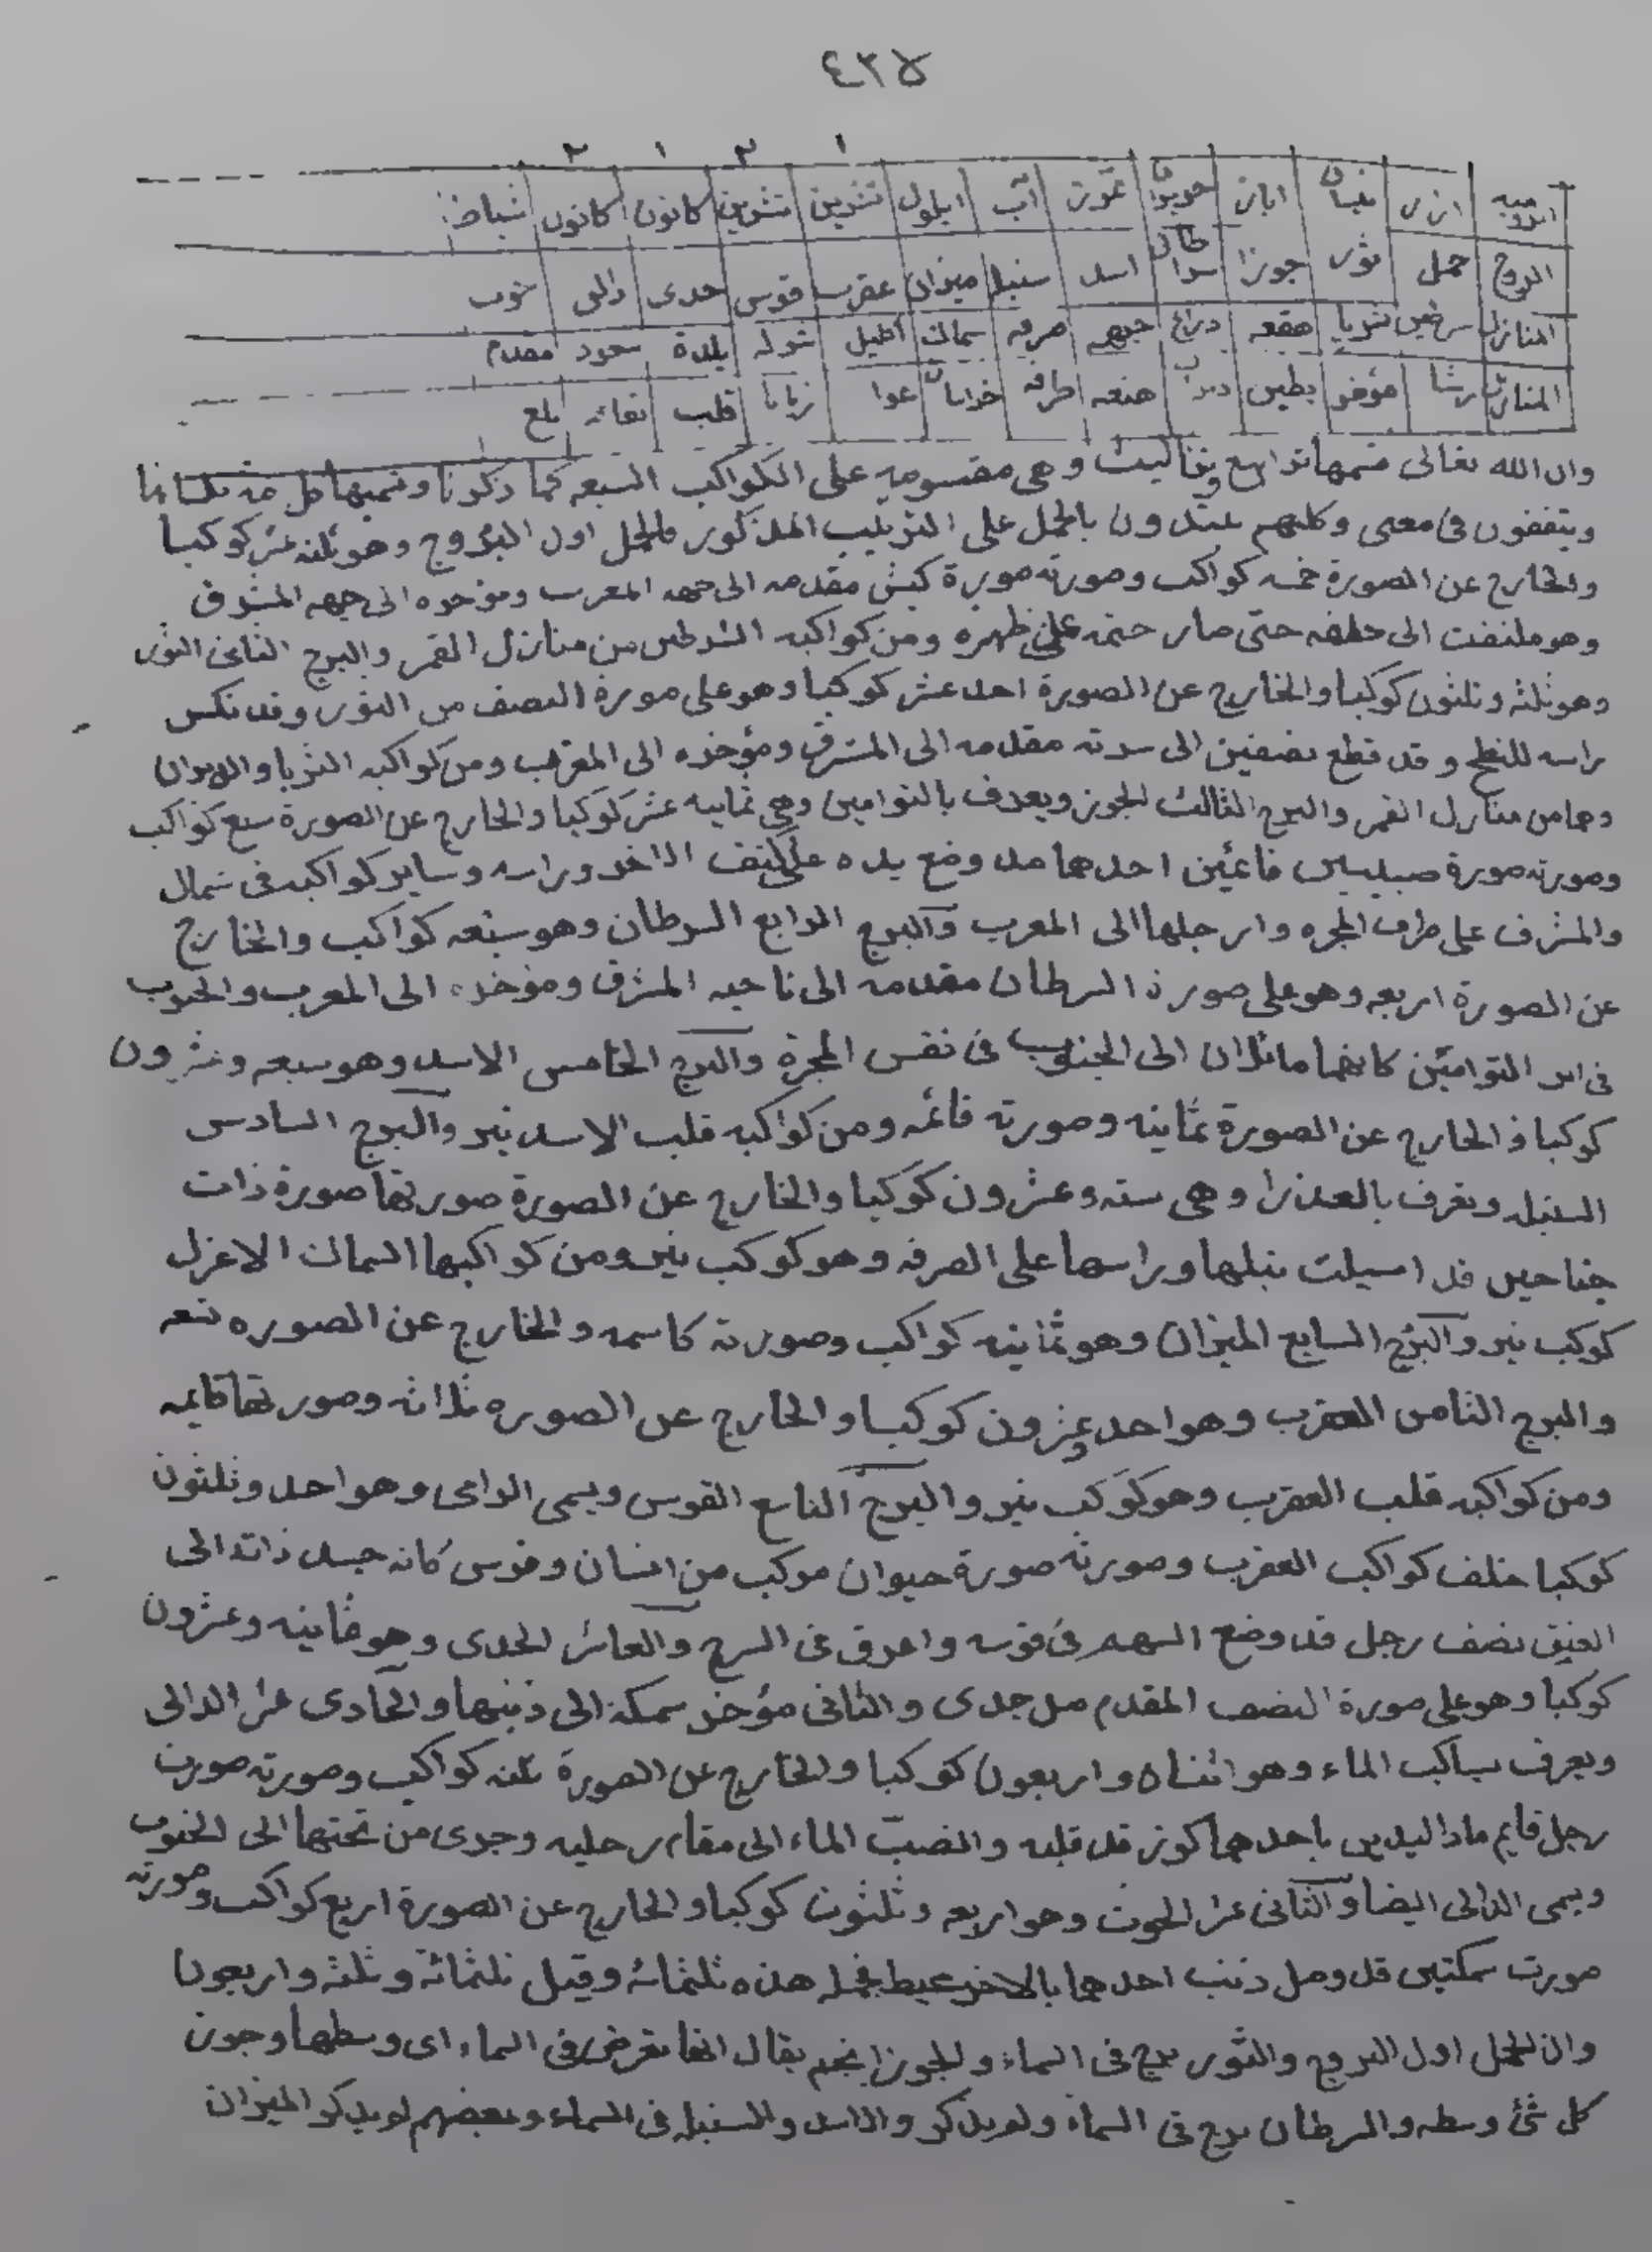 ٤٢٧
١ ٢ ١ ٢
الرومية اذار نيسان ايار حزيران تموز آب ايلول تشرين تشرين كانون كانون شباط
البروج حمل ثور جوزا سرطان اسد سنبله ميزان عقرب قوس جدى دالى حوت
المنازل ثريا هقعه ذراع جبهه صرفه سماك اكليل شوله بلدة سعود مقدم
المنازل رشا بطين هنعه طرفه عوا زبانا قلب نعائم بلع
وان الله تعالى قسمها وهى مقسوميه على الكواكب السبعه كما ذكرنا
ويتفقون فى معنى وكلهم يبتدون بالحمل على الترتيب المذكور فالحمل اول البروج وهو ثلثه عشر كوكبا
والخارج عن الصورة خمسه كواكب وصورته صورة كبش مقدمه الى جهه المغرب ومؤخره الى جهه المشرق
وهو ملتفت الى خلفه حتى صار على ظهره ومن كواكبه الشرطين من منازل القمر والبرج الثانى الثور
وهو ثلثه وثلثون كوكبا والخارج عن الصورة احد عشر كوكبا وهو على صورة النصف من الثور وقد نكس
راسه للنطح وقد قطع نصفين الى سرته مقدمه الى المشرق ومؤخره الى المغرب ومن كواكبه الثريا والدبران
وهما من منازل القمر والبرج الثالث الجوز ويعرف بالتوامين وهى ثمانيه عشر كوكبا والخارج عن الصورة سبع كواكب
وصورته صورة صبيين قائمين احدهما قد وضع يده على كتف الاخر وراسه وساير كواكبه فى شمال
والمشرق على طرف المجره وارجلها الى المغرب والبرج الرابع السرطان وهو سبعه كواكب والخارج
عن الصورة اربعه وهو على صورة السرطان مقدمه الى ناحيه المشرق ومؤخره الى المغرب والجنوب
التوامين كانهما مائلان الى الجنوب فى نفس المجرة والبرج الخامس الاسد وهو سبعه وعشرون
كوكبا والخارج عن الصورة ثمانيه وصورته قائمه ومن كواكبه قلب الاسد نير والبرج السادس
السنبله وتعرف بالعذرا وهى سته وعشرون كوكبا والخارج عن الصورة صورتها صورة ذات
جناحين قد اسبلت وراسها على الصرفه وهو كوكب نير ومن كواكبها السماك الاعزل
كوكب نير والبرج السابع الميزان وهو ثمانيه كواكب وصورته كاسمه والخارج عن الصوره تسعه
والبرج الثامن العقرب وهو احد وعشرون كوكبا والخارج عن الصوره ثلاثه وصورتها قايمه
ومن كواكبه قلب العقرب وهو كوكب نير والبرج التاسع القوس ويسمى الرامى وهو احد وثلثون
كوكبا خلف كواكب العقرب وصورته صورة حيوان مركب من انسان وفرس كانه جسد ذاته الى
العنق نصف رجل قد وضع السهم فى قوسه واغرق فى والعاشر الجدى وهو ثمانيه وعشرون
كوكبا وهو على صورة النصف المقدم من جدى والثانى مؤخر سمكة الى ذنبها والحادى عشر الدالى
ويعرف بساكب الماء وهو اثنان واربعون كوكبا والخارج عن الصورة ثلثه كواكب وصورته صورت
رجل قايم ماد اليدين باحدهما كوز قد قلبه وانصب الماء الى مقام رجليه وجرى من تحتها الى الجنوب
ويسمى الدالى ايضا والثانى عشر الحوت وهو اربعه وثلثون كوكبا والخارج عن الصورة اربع كواكب وصورته
صورت سمكتين قد وصل ذنب احدهما بالاخر بخيط فجمله هذه ثلثمائه وقيل ثلثمائه وثلثه واربعون
وان الحمل اول البروج والثور برج فى السماء والجوزا نجم يقال انها تعرض فى السماء اى وسطها وجوز
كل شئ وسطه والسرطان برج فى السماء ولم يذكر والاسد والسنبله فى السماء وبعضهم لم يذكر الميزان